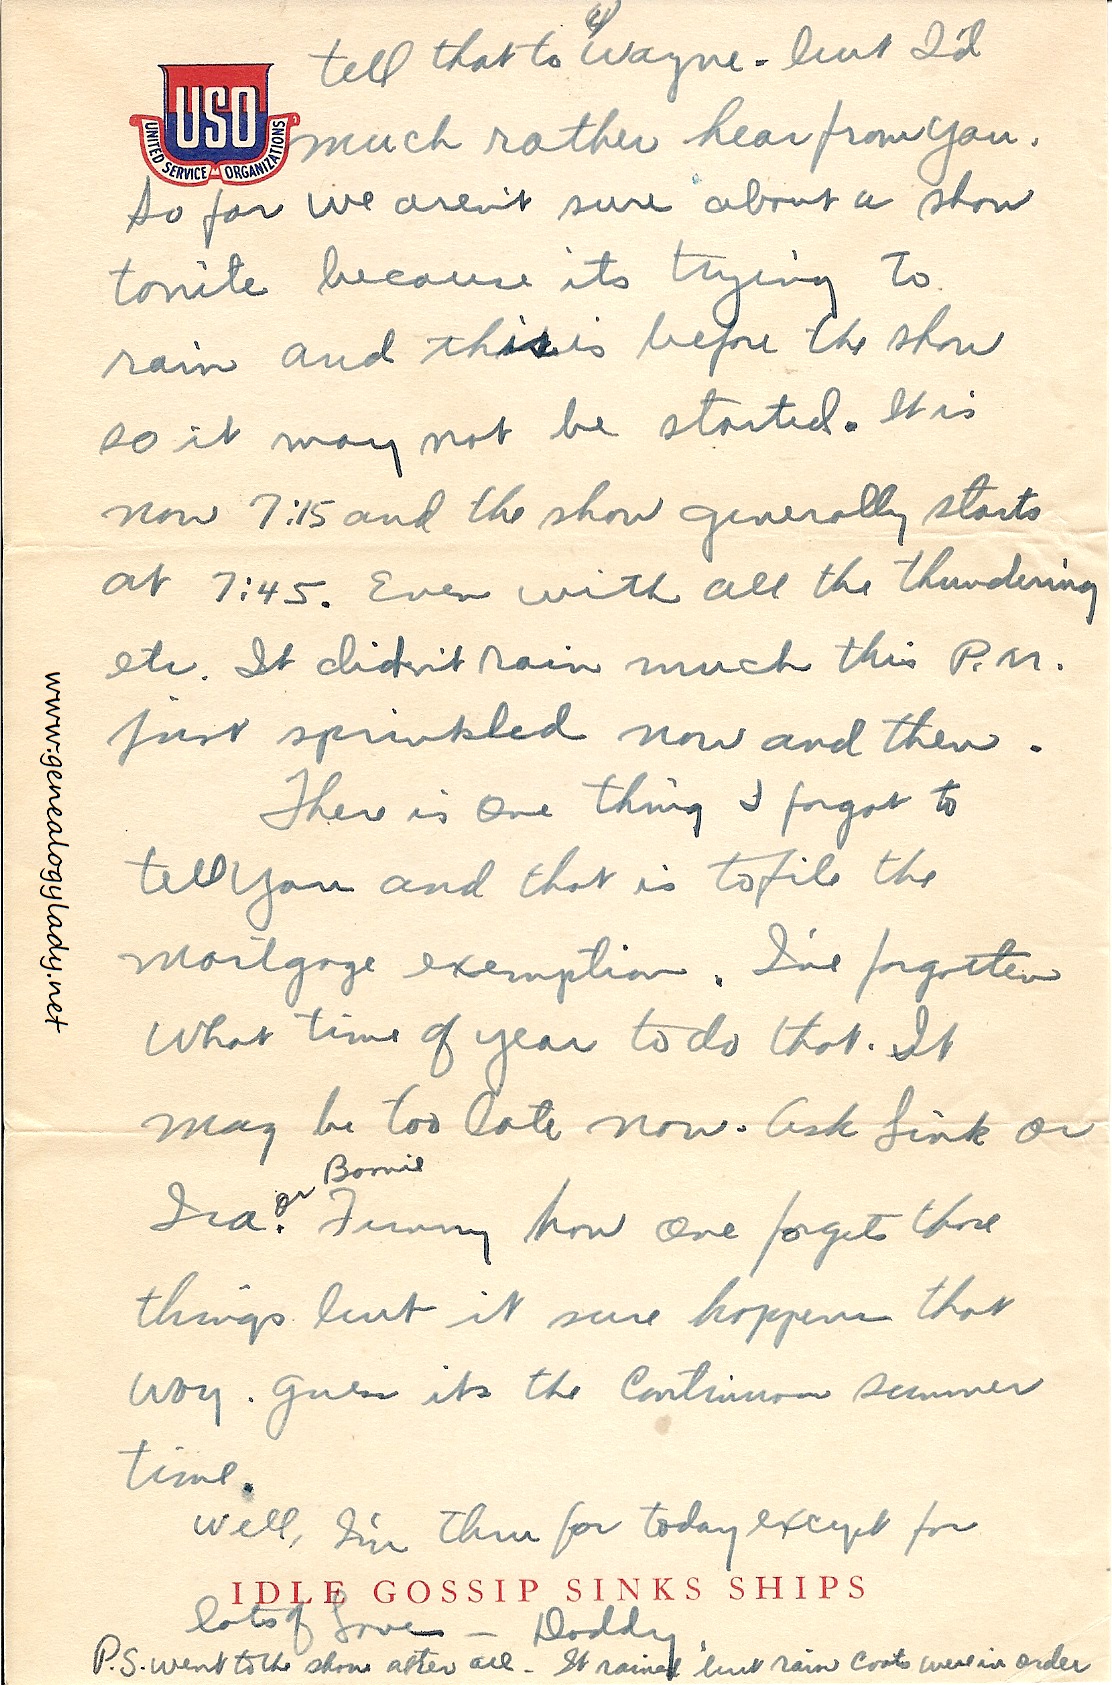 USO
UNITED SERVICE ORGANIZATIONS
tell that to Wayne - but I'd
much rather hear from you.
So far we aren't sure about a show
tonite because its trying to
rain and this is before the show
so it may not be started. It is
now 7:15 and the show generally starts
at 7:45. Even with all the thundering
etc. It didn't rain much this P.M.
just sprinkled now and then.
There is one thing I forgot to
tell you and that is to file the
mortgage exemption. I've forgotten
what time of year to do that. It
may be too late now. Ask Sink or
or Bernie
Ira. Funny how one forgets those
things but it sure happens that
way. Guess its the continuous summer
time.
Well, I'm thru for today except for
IDLE GOSSIP SINKS SHIPS
lots of Love - Daddy.
P.S. went to the show after all - It rained but rain coats were in order
www.genealogylady.net